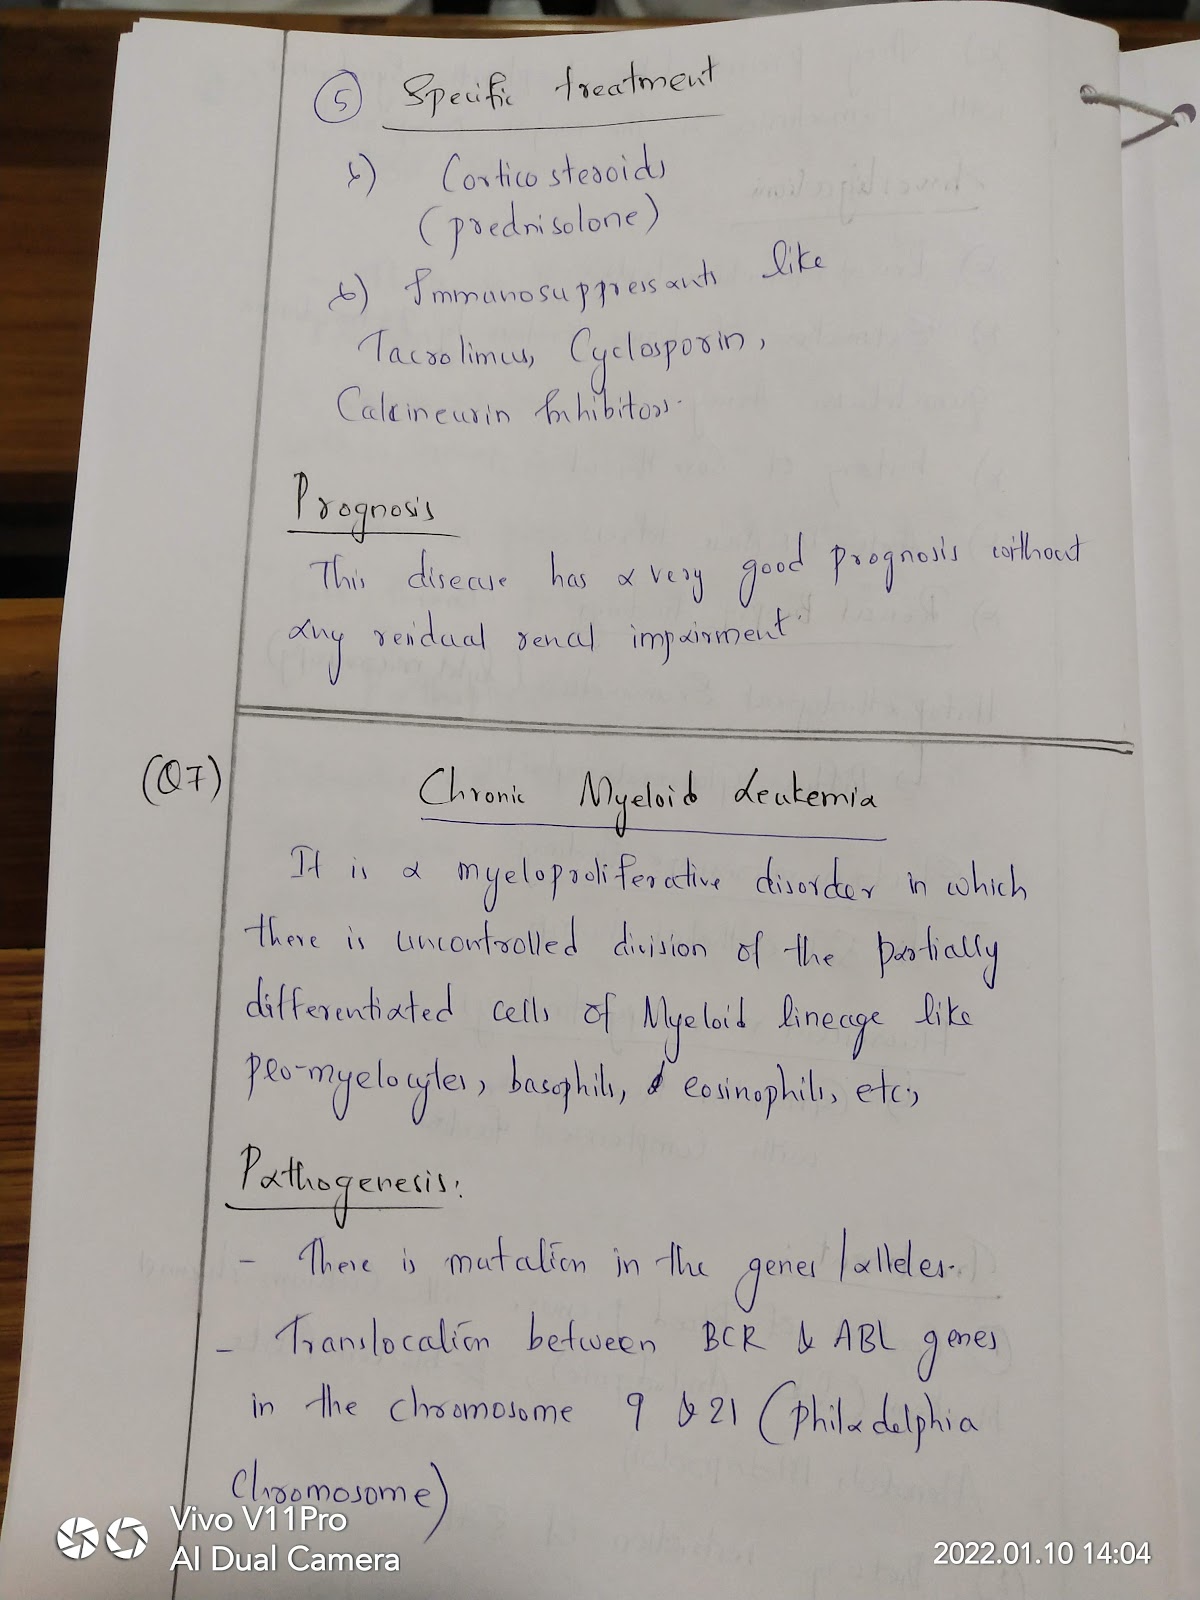 5 Specific treatment
a) Corticosteroids
(prednisolone)
b) Immunosuppressants like
Tacrolimus, Cyclosporin,
Calcineurin Inhibitors.
Prognosis
This disease has a very good prognosis without
any residual renal impairment.
(Q7)
Chronic Myeloid Leukemia
It is a myeloproliferative disorder in which
there is uncontrolled division of the partially
differentiated cells of Myeloid lineage like
pro-myelocytes, basophils, eosinophils, etc;
Pathogenesis:
- There is mutation in the genes/alleles.
- Translocation between BCR & ABL genes
in the chromosome 9 & 21 (Philadelphia
chromosome)
Vivo V11Pro
AI Dual Camera
2022.01.10 14:04